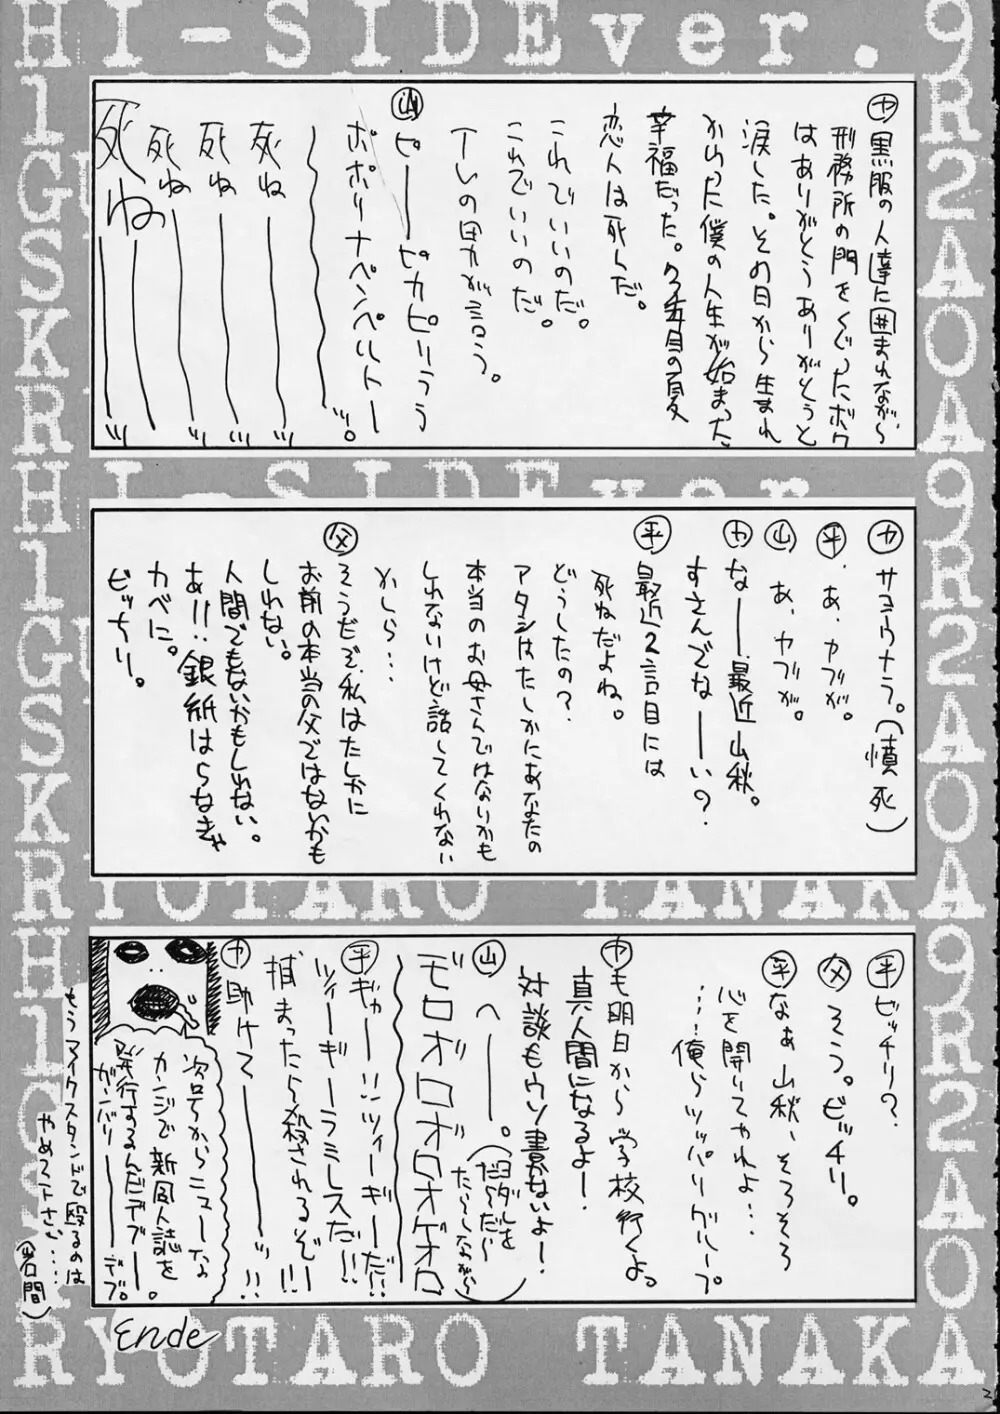 HI-SIDEver.
㊉黒服の人達に囲まれながら、
刑務所の門をくぐったボク
はありがとうありがとうと
涙した。その日から生まれ
かわった僕の人生が始まった、
幸福だった。
恋人は死んだ。
これでいいのだ。
これでいいのだ。
㊉ピーーピカピリうう
ポポリーナペンペルトー
〜〜〜ッ。
死ねーーッ
死ねーーッ
死ねーーッ
死ねーーッ
HI-SIDEver.
サヨウナラ。(憤死)
㊥、あ、ヤブが。
㊤あ、ヤブが。
なーー最近山秋。
すさんでなーーい?
平 最近2言目には
死ねだよね。
どうしたの?
アタシはたしかにあなたの
本当のお母さんではないかも
しれないけど話してくれない
かしら…
父 そうだぞ、私はたしかに
お前の本当の父ではないかも
しれない。
人間でもないかもしれない。
あ!!銀紙はらなきゃ
カベに。
ビッちり。
RYOTARO TANAKA
平 ビッチリ?
父 そう。ビッチリ。
平 なぁ山秋、そろそろ
心を開いてやれよ…
…俺らツッパリグループ
も明日から学校行くよっ
真人間になるよ!
対談もウソ書かないよー!
山 へーーー。(ヨダレをだらだら〜たら〜しながら)
モロオロボロオロオゲオロ
〜〜〜
平 ギャー!!ツィーギーだ!!
ツィーギーラミレスだ!!
捕まったら殺されるぞ!!!
助けてーーーッ!!
次号からニューな
カンジで新風人誌を
発行するんだデブー。
ガンバリーーデブ。
もうマイクスタンドで殴るのは
やめて下さい……
(岩間)
Ende
RYOTARO TANAKA
2